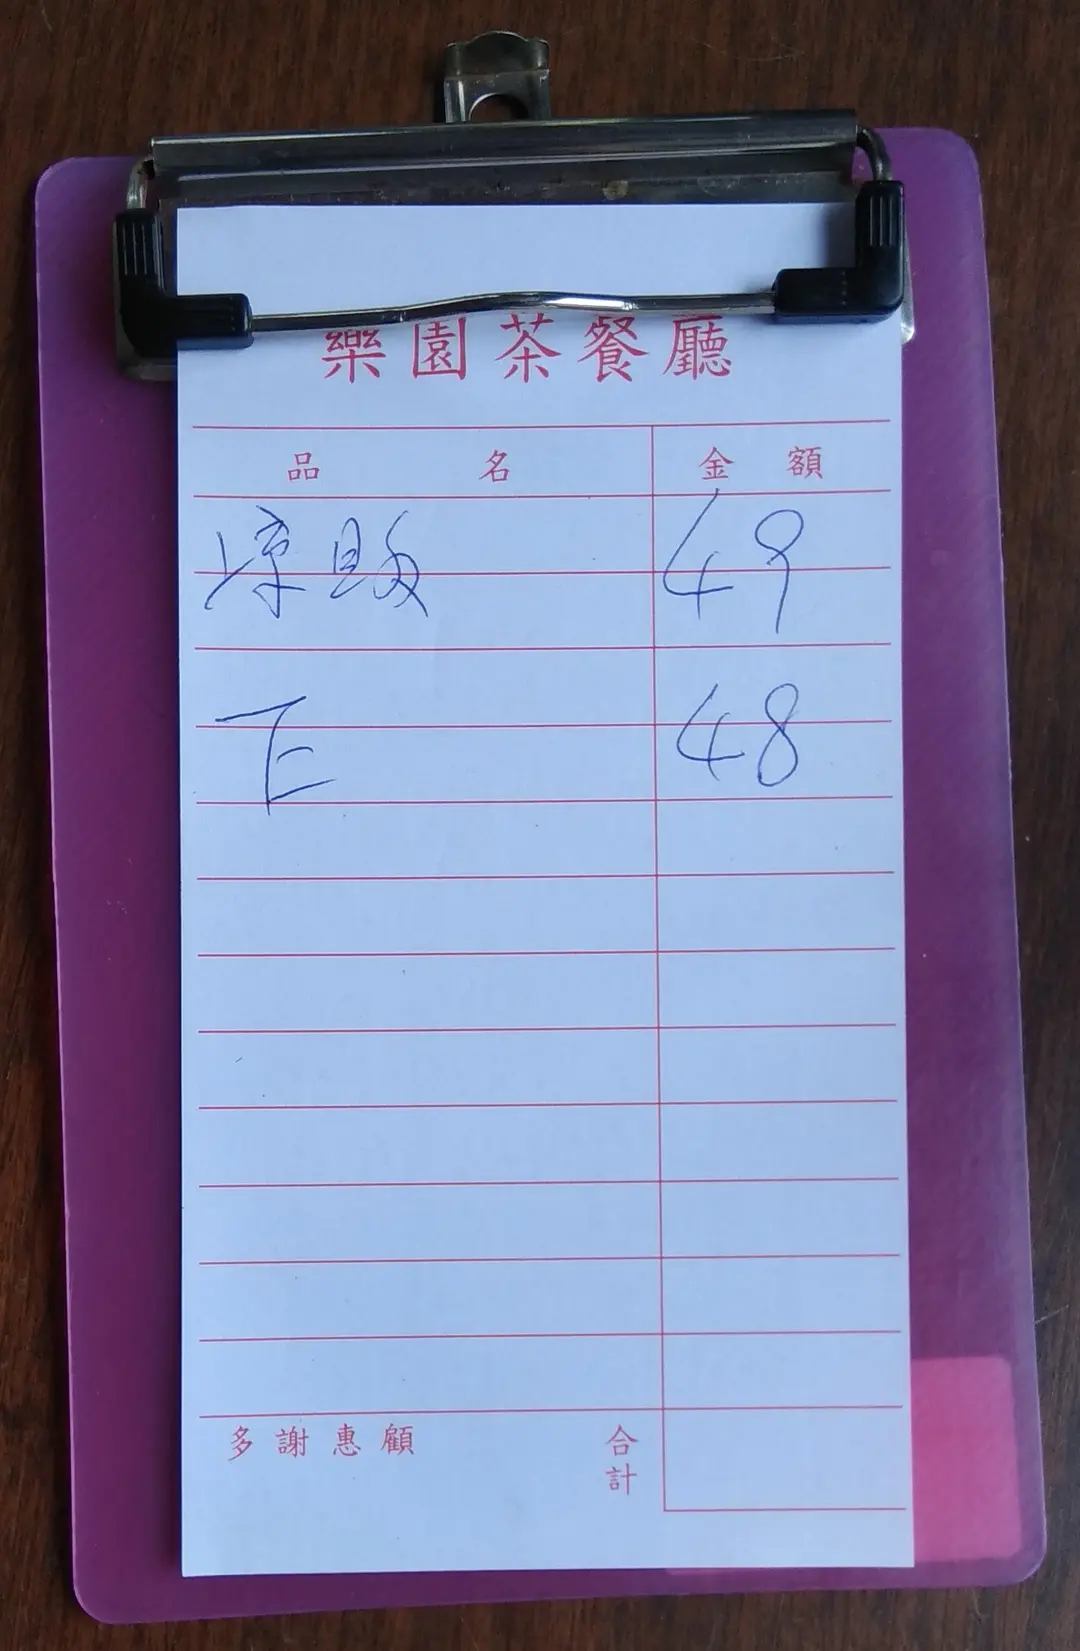 樂園茶餐廳
品名 金額
49
48
多謝惠顧 合計